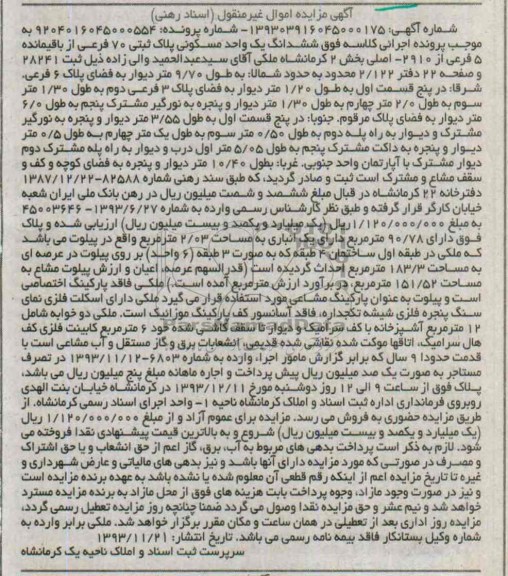 آگهی مزایده اموال غیرمنقول (اسناد رهنی)
شماره آگهی: ۱۳۹۳۰۳۹۱۶۰۴۵۰۰۰۱۷۵- شماره پرونده: ۹۲۰۴۰۱۶۰۴۵۰۰۰۵۵۴ به
موجب پرونده اجرائی کلاسه فوق ششدانگ یک واحد مسکونی پلاک ثبتی ۷۰ فرعی از باقیمانده
۵ فرعی از ۲۹۱۰- اصلی بخش ۲ کرمانشاه ملکی آقای سیدعبدالحمید والی زاده ذیل ثبت ۲۸۲۴۱
و صفحه ۲۲ دفتر ۲/۱۲۲ محدود به حدود شمالا: به طول ۹/۷۰ متر دیوار به فضای پلاک ۶ فرعی.
شرقا: در پنج قسمت اول به طول ۱/۲۰ متر دیوار به فضای پلاک ۳ فرعی دوم به طول ۱/۳۰ متر
سوم به طول ۲/۰ متر چهارم به طول ۱/۳۰ متر دیوار و پنجره به نورگیر مشترک پنجم به طول ۶/۰
متر دیوار به فضای پلاک مرقوم. جنوبا: در پنج قسمت اول به طول ۳/۵۵ متر دیوار و پنجره به نورگیر
مشترک و دیوار به راه پله دوم به طول ۰/۵۰ متر سوم به طول یک متر چهارم به طول ۰/۵ متر
دیوار و پنجره به داکت مشترک پنجم به طول ۵/۰۵ متر اول درب و دیوار به راه پله مشترک دوم
دیوار مشترک با آپارتمان واحد جنوبی. غربا: بطول ۱۰/۴۰ متر دیوار و پنجره به فضای کوچه و کف و
سقف مشاع و مشترک است ثبت و صادر گردیده، که طبق سند رهنی شماره ۸۲۵۸۸-۱۳۸۷/۱۲/۲۲
دفترخانه ۲۲ کرمانشاه در قبال مبلغ ششصد و شصت میلیون ریال در رهن بانک ملی ایران شعبه
خیابان کارگر قرار گرفته و طبق نظر کارشناس رسمی وارده به شماره ۱۳۹۳/۶/۲۷- ۴۵۰۰۳۶۴۶
به مبلغ ۱/۱۲۰/۰۰۰/۰۰۰ ریال (یک میلیارد و یکصد و بیست میلیون ریال) ارزیابی شده و پلاک
فوق دارای ۹۰/۷۸ مترمربع دارای یک انباری به مساحت ۲/۰۳ مترمربع واقع در پیلوت می باشد
که ملکی در طبقه اول ساختمان ۴ طبقه که به صورت ۳ طبقه (۶ واحد) بر روی پیلوت در عرصه ای
به مساحت ۱۸۳/۳ مترمربع احداث گردیده است (قدرالسهم عرصه اعیان و ارزش پیلوت مشاع به
مساحت ۱۵۱/۵۲ مترمربع، در برآورد ارزش مترمربع آمده است.) ملکی فاقد پارکینگ اختصاصی
است و پیلوت به عنوان پارکینگ مشاعی مورد استفاده قرار می گیرد ملکی دارای اسکلت فلزی نمای
سنگ پنجره فلزی شیشه تکجداره، فاقد آسانسور کف پارکینگ موزائیک است. ملکی دو خوابه شامل
۱۲ مترمربع آشپزخانه با کف سرامیک و دیوار تا سقف کاشی شده خود ۶ مترمربع کابینت فلزی کف
هال سرامیک، اتاقها موکت شده نقاشی شده قدیمی، انشعابات برق و گاز مستقل و آب مشاعی است با
قدمت حدودا ۹ سال که برابر گزارش مامور اجرا، وارده به شماره ۶۸۰۳-۱۳۹۳/۱۱/۱۲ در تصرف
مستاجر به صورت یک صد میلیون ریال پیش پرداخت و اجاره ماهانه مبلغ پنج میلیون ریال می باشد،
پلاک فوق از ساعت ۹ الی ۱۲ روز دوشنبه مورخ ۱۳۹۳/۱۲/۱۱ در کرمانشاه خیابان بنت الهدی
روبروی فرمانداری اداره ثبت اسناد و املاک کرمانشاه ناحیه ۱- واحد اجرای اسناد رسمی کرمانشاه. از
طریق مزایده حضوری به فروش می رسد. مزایده برای عموم آزاد و از مبلغ ۱/۱۲۰/۰۰۰/۰۰۰ ریال
(یک میلیارد و یکصد و بیست میلیون ریال) شروع و به بالاترین قیمت پیشنهادی نقدا فروخته می
شود. لازم به ذکر است پرداخت بدهی های مربوط به آب، برق، گاز اعم از حق انشعاب و یا حق اشتراک
و مصرف در صورتی که مورد مزایده دارای آنها باشد و نیز بدهی های مالیاتی و عارض شهرداری و
غیره تا تاریخ مزایده اعم از اینکه رقم قطعی آن معلوم شده یا نشده باشد به عهده برنده مزایده است
و نیز در صورت وجود مازاد، وجوه پرداخت بابت هزینه های فوق از محل مازاد به برنده مزایده مسترد
خواهد شد و نیم عشر و حق مزایده نقدا وصول می گردد ضمنا چنانچه روز مزایده تعطیل رسمی گردد،
مزایده روز اداری بعد از تعطیلی در همان ساعت و مکان مقرر برگزار خواهد شد. ملکی برابر وارده به
شماره وکیل بستانکار فاقد بیمه نامه رسمی می باشد. تاریخ انتشار: ۱۳۹۳/۱۱/۲۱
سرپرست ثبت اسناد و املاک ناحیه یک کرمانشاه